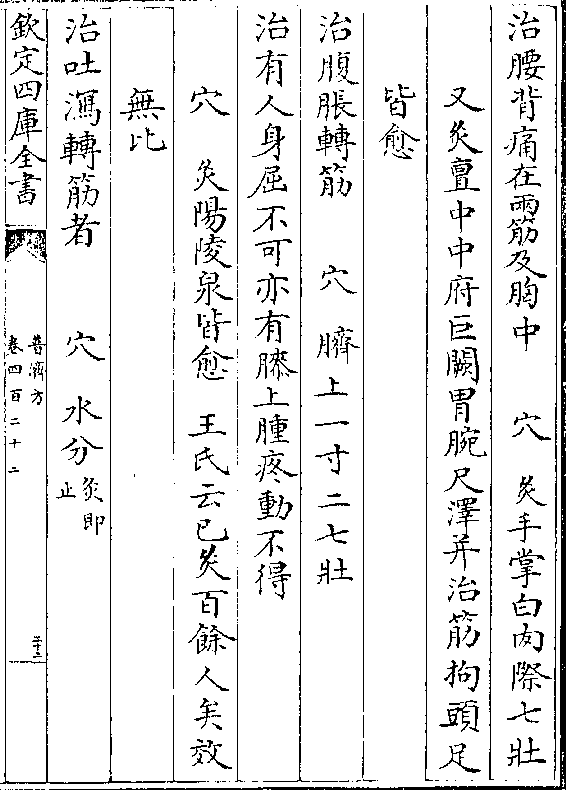 治腰背痛在兩筋及胸中　穴　灸手掌白肉際七壯
又灸亶中中府巨闕胃腕尺澤并治筋拘頭足
皆愈
治腹脹轉筋　穴　臍上一寸二七壯
治有人身屈不可亦有膝上腫疼動不得
穴　灸陽陵泉皆愈　王氏云已灸百餘人矣效
無比
治吐瀉轉筋者　穴　水分灸即止
欽定四庫全書
普濟方
卷四百二十二
三十二